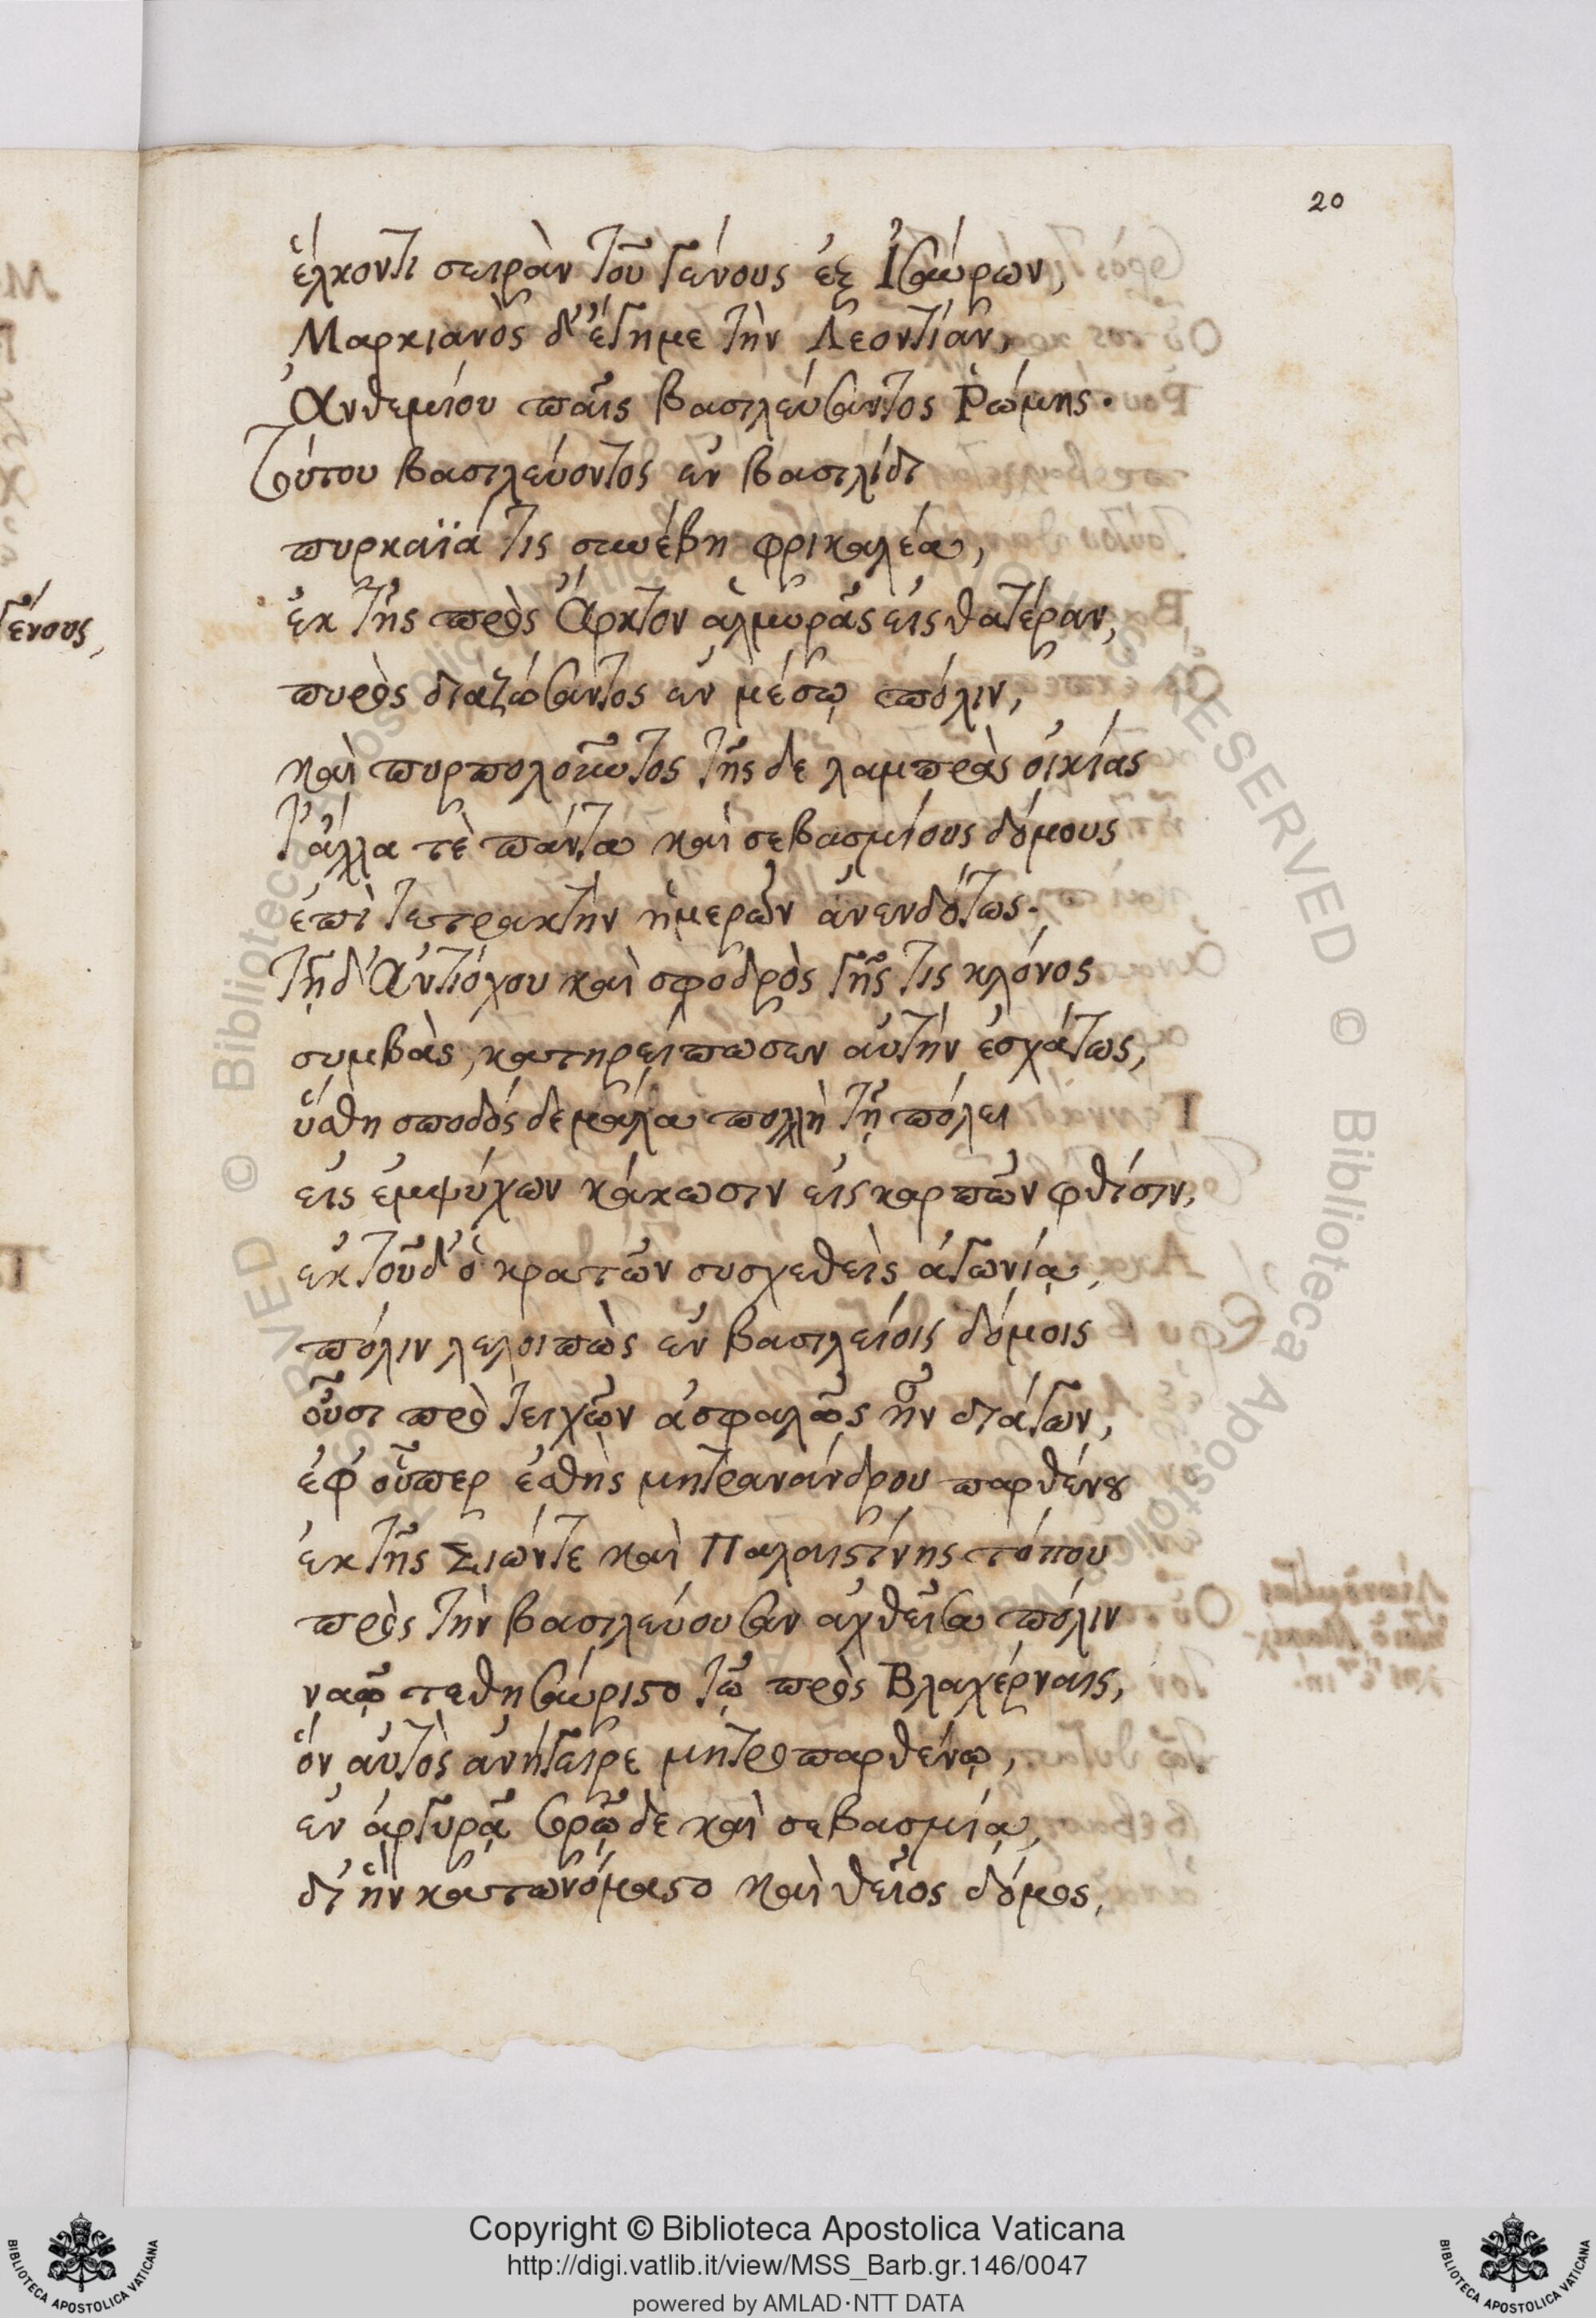 20
ἕλκοντι σειρὰν τοῦ γένους ἐξ Ἰσαύρων,
Μαρκιανὸς δ' ἔγημε τὴν Λεοντίαν,
Ἀνθεμίου παῖς βασιλεύσαντος Ῥώμης.
Τούτου βασιλεύοντος ἐν βασιλίδι
πυρκαϊά τις συνέβη φρικαλέα,
ἐκ τῆς πρὸς Ἄρκτον ἁλμυρᾶς εἰς θατέραν,
γένους,
πυρὸς διαζώσαντος ἐν μέσῳ πόλιν,
καὶ πυρπολοῦντος τῆς δε λαμπρὰς οἰκίας
τἄλλα τὲ πάντα καὶ σεβασμίους δόμους
ἐπὶ τετρακτὴν ἡμερῶν ἀνενδότως.
τῇ δ' Ἀντιόχου καὶ σφοδρὸς γῆς τις κλόνος
συμβὰς, κατηρείπωσεν αὐτὴν ἐσχάτως,
ὕσθη σποδός δε μάλα πολλὴ τῇ πόλει
εἰς ἐμψύχων κάκωσιν εἰς καρπῶν φθίσιν,
ἐκ τοῦδ' ὁ κρατῶν συσχεθεὶς ἀγωνίᾳ,
πόλιν λελοιπὼς ἐν βασιλείοις δόμοις
οὖσι πρὸ τειχῶν ἀσφαλῶς ἦν διάγων,
ἐφ οὗπερ ἐσθὴς μητρανάνδρου παρθένου
ἐκ τῆς Σιώντε καὶ Παλαιστίνης τόπου
πρὸς τὴν βασιλεύουσαν ἀχθεῖσα πόλιν
ναῷ τεθησαύριστο τῷ πρὸς Βλαχέρναις,
ὃν αὐτὸς ἀνήγειρε μητροπαρθένῳ,
ἐν ἀργυρᾷ σορῷ δε καὶ σεβασμίᾳ,
δι' ἣν κατωνόμαστο καὶ θεῖος δόμος,
© Biblioteca Apostolica Vaticana
Copyright © Biblioteca Apostolica Vaticana
http://digi.vatlib.it/view/MSS_Barb.gr.146/0047
powered by AMLAD·NTT DATA
BIBLIOTECA APOSTOLICA VATICANA
BIBLIOTECA APOSTOLICA VATICANA